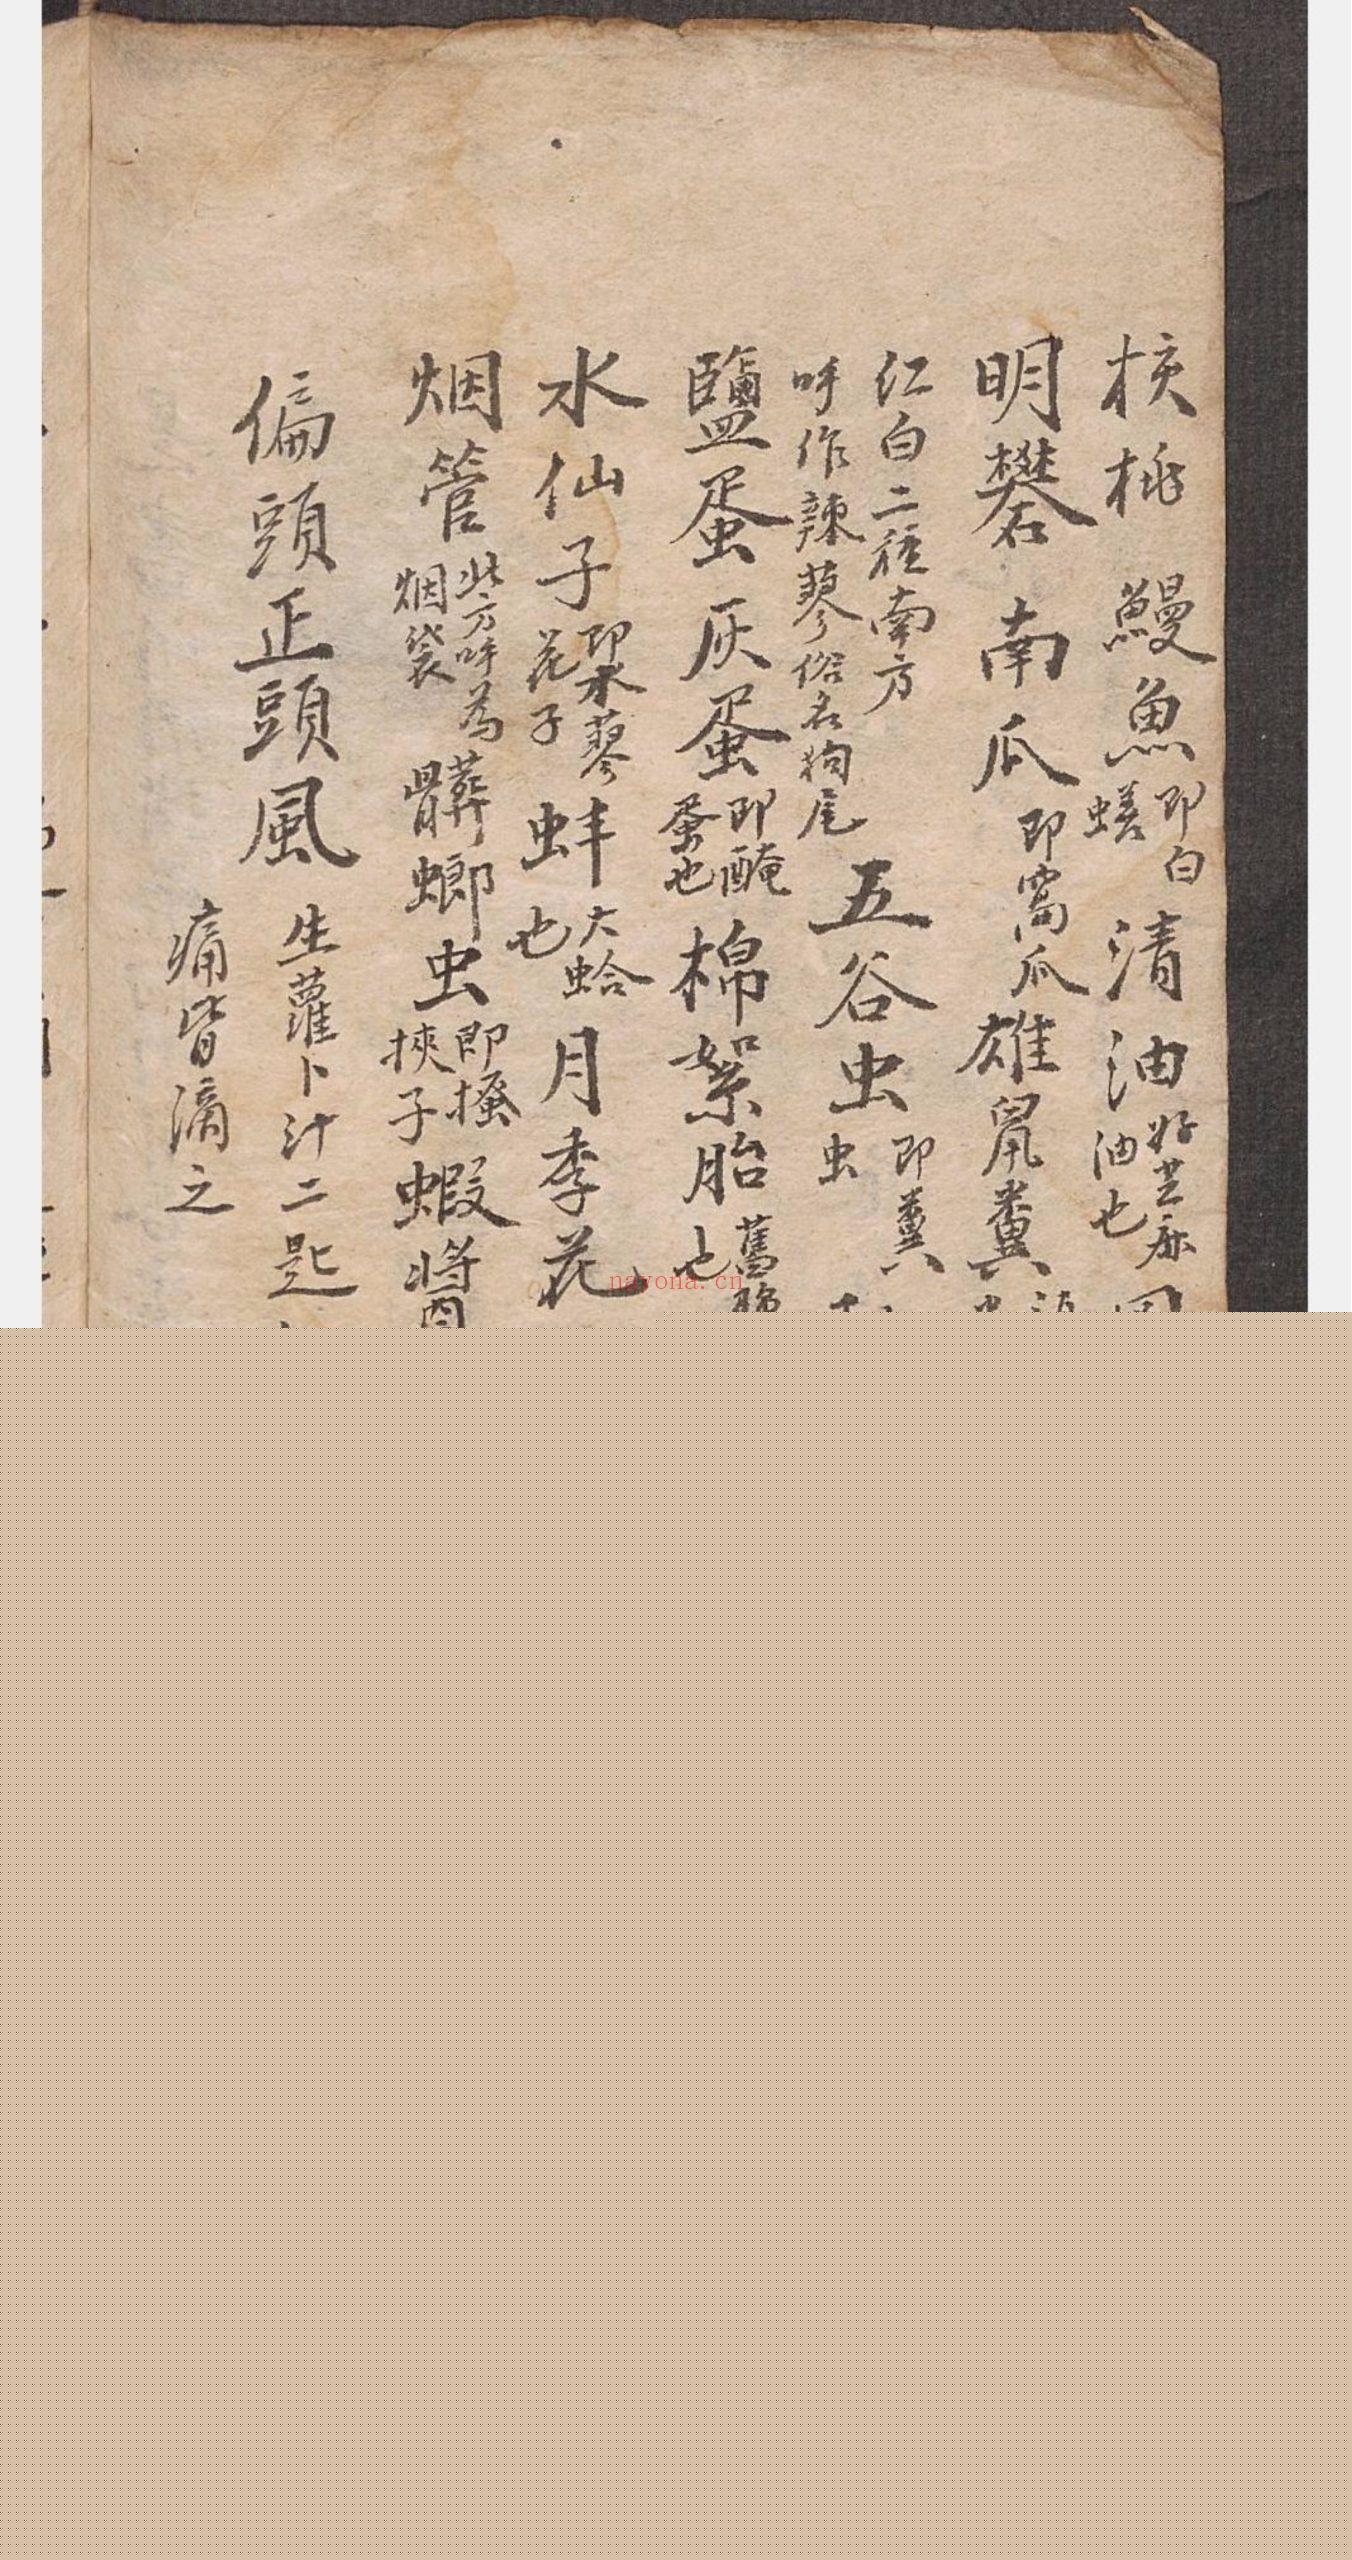 核桃 鰻魚 即白蟮 清油 好芝麻油也
明礬 南瓜 即窩瓜 雄鼠糞
红白二種南方呼作辣蓼俗名狗尾 五谷虫 即糞虫
鹽蛋 灰蛋 即醃蛋也 棉絮胎 舊 也
水仙子 即水蓼花子 蚌 大蛤也 月季花
烟管 此方呼為烟袋 髒螂虫 即搔挾子 蝦醬
偏頭正頭風 生蘿卜汁二匙
痛皆滴之
nayona.cn